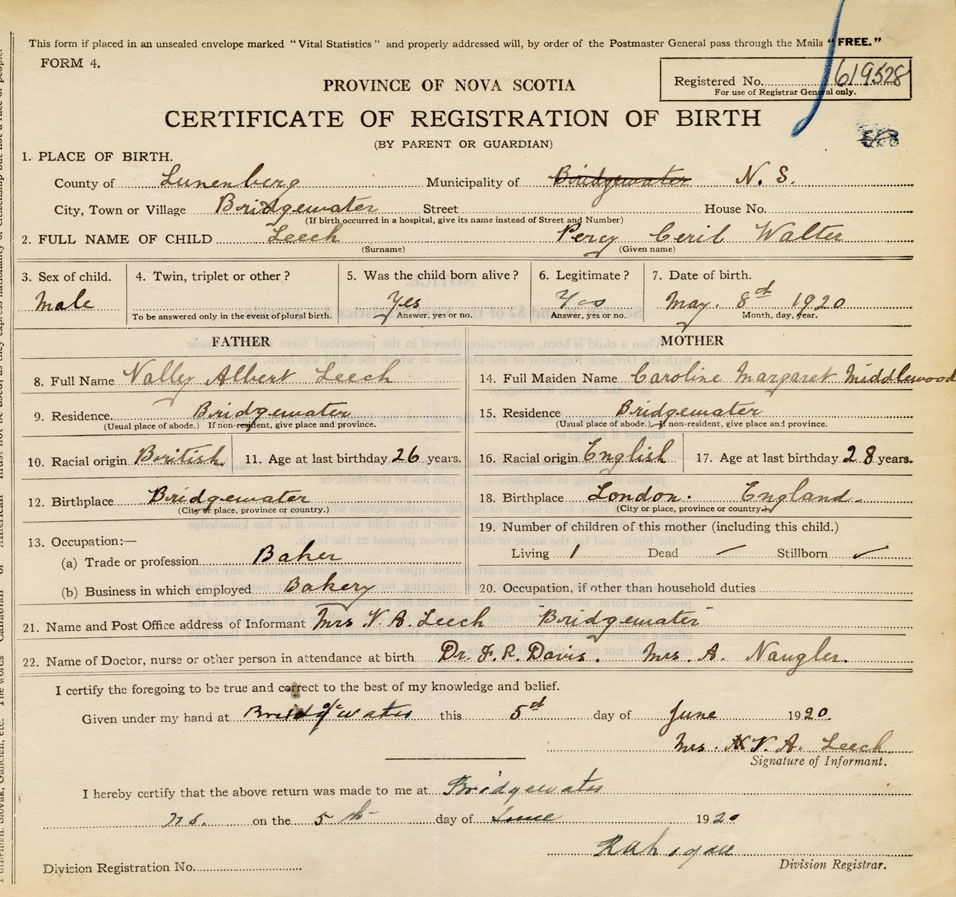 This form if placed in an unsealed envelope marked "Vital Statistics" and properly addressed will, by order of the Postmaster General pass through the Mails "FREE."
FORM 4.
Registered No. 619528
For use of Registrar General only.
PROVINCE OF NOVA SCOTIA
CERTIFICATE OF REGISTRATION OF BIRTH
(BY PARENT OR GUARDIAN)
1. PLACE OF BIRTH.
County of Lunenberg Municipality of Bridgewater N. S.
City, Town or Village Bridgewater Street House No.
(If birth occurred in a hospital, give its name instead of Street and Number)
2. FULL NAME OF CHILD Leech Percy Ceril Walter
(Surname) (Given name)
3. Sex of child. 4. Twin, triplet or other? 5. Was the child born alive? 6. Legitimate? 7. Date of birth.
Male Yes Yes May. 8rd 1920
To be answered only in the event of plural birth. Answer, yes or no. Answer, yes or no. Month, day, year.
FATHER MOTHER
8. Full Name Vally Albert Leech 14. Full Maiden Name Caroline Margaret Middlewood
9. Residence. Bridgewater 15. Residence Bridgewater
(Usual place of abode.) If non-resident, give place and province. (Usual place of abode.) If non-resident, give place and province.
10. Racial origin British 11. Age at last birthday 26 years. 16. Racial origin English 17. Age at last birthday 28 years.
12. Birthplace Bridgewater 18. Birthplace London. England.
(City or place, province or country.) (City or place, province or country.)
19. Number of children of this mother (including this child.)
13. Occupation:—
(a) Trade or profession Baker Living 1 Dead — Stillborn
(b) Business in which employed Bakery 20. Occupation, if other than household duties
21. Name and Post Office address of Informant Mrs V. A. Leech Bridgewater
22. Name of Doctor, nurse or other person in attendance at birth Dr. F. R. Davis. Mrs. A. Naugler.
I certify the foregoing to be true and correct to the best of my knowledge and belief.
Given under my hand at Bridgewater this 5rd day of June 1920.
Mrs. V. A. Leech
Signature of Informant.
I hereby certify that the above return was made to me at Bridgewater
n.s. on the 5th day of June 1920
Division Registration No. Division Registrar.